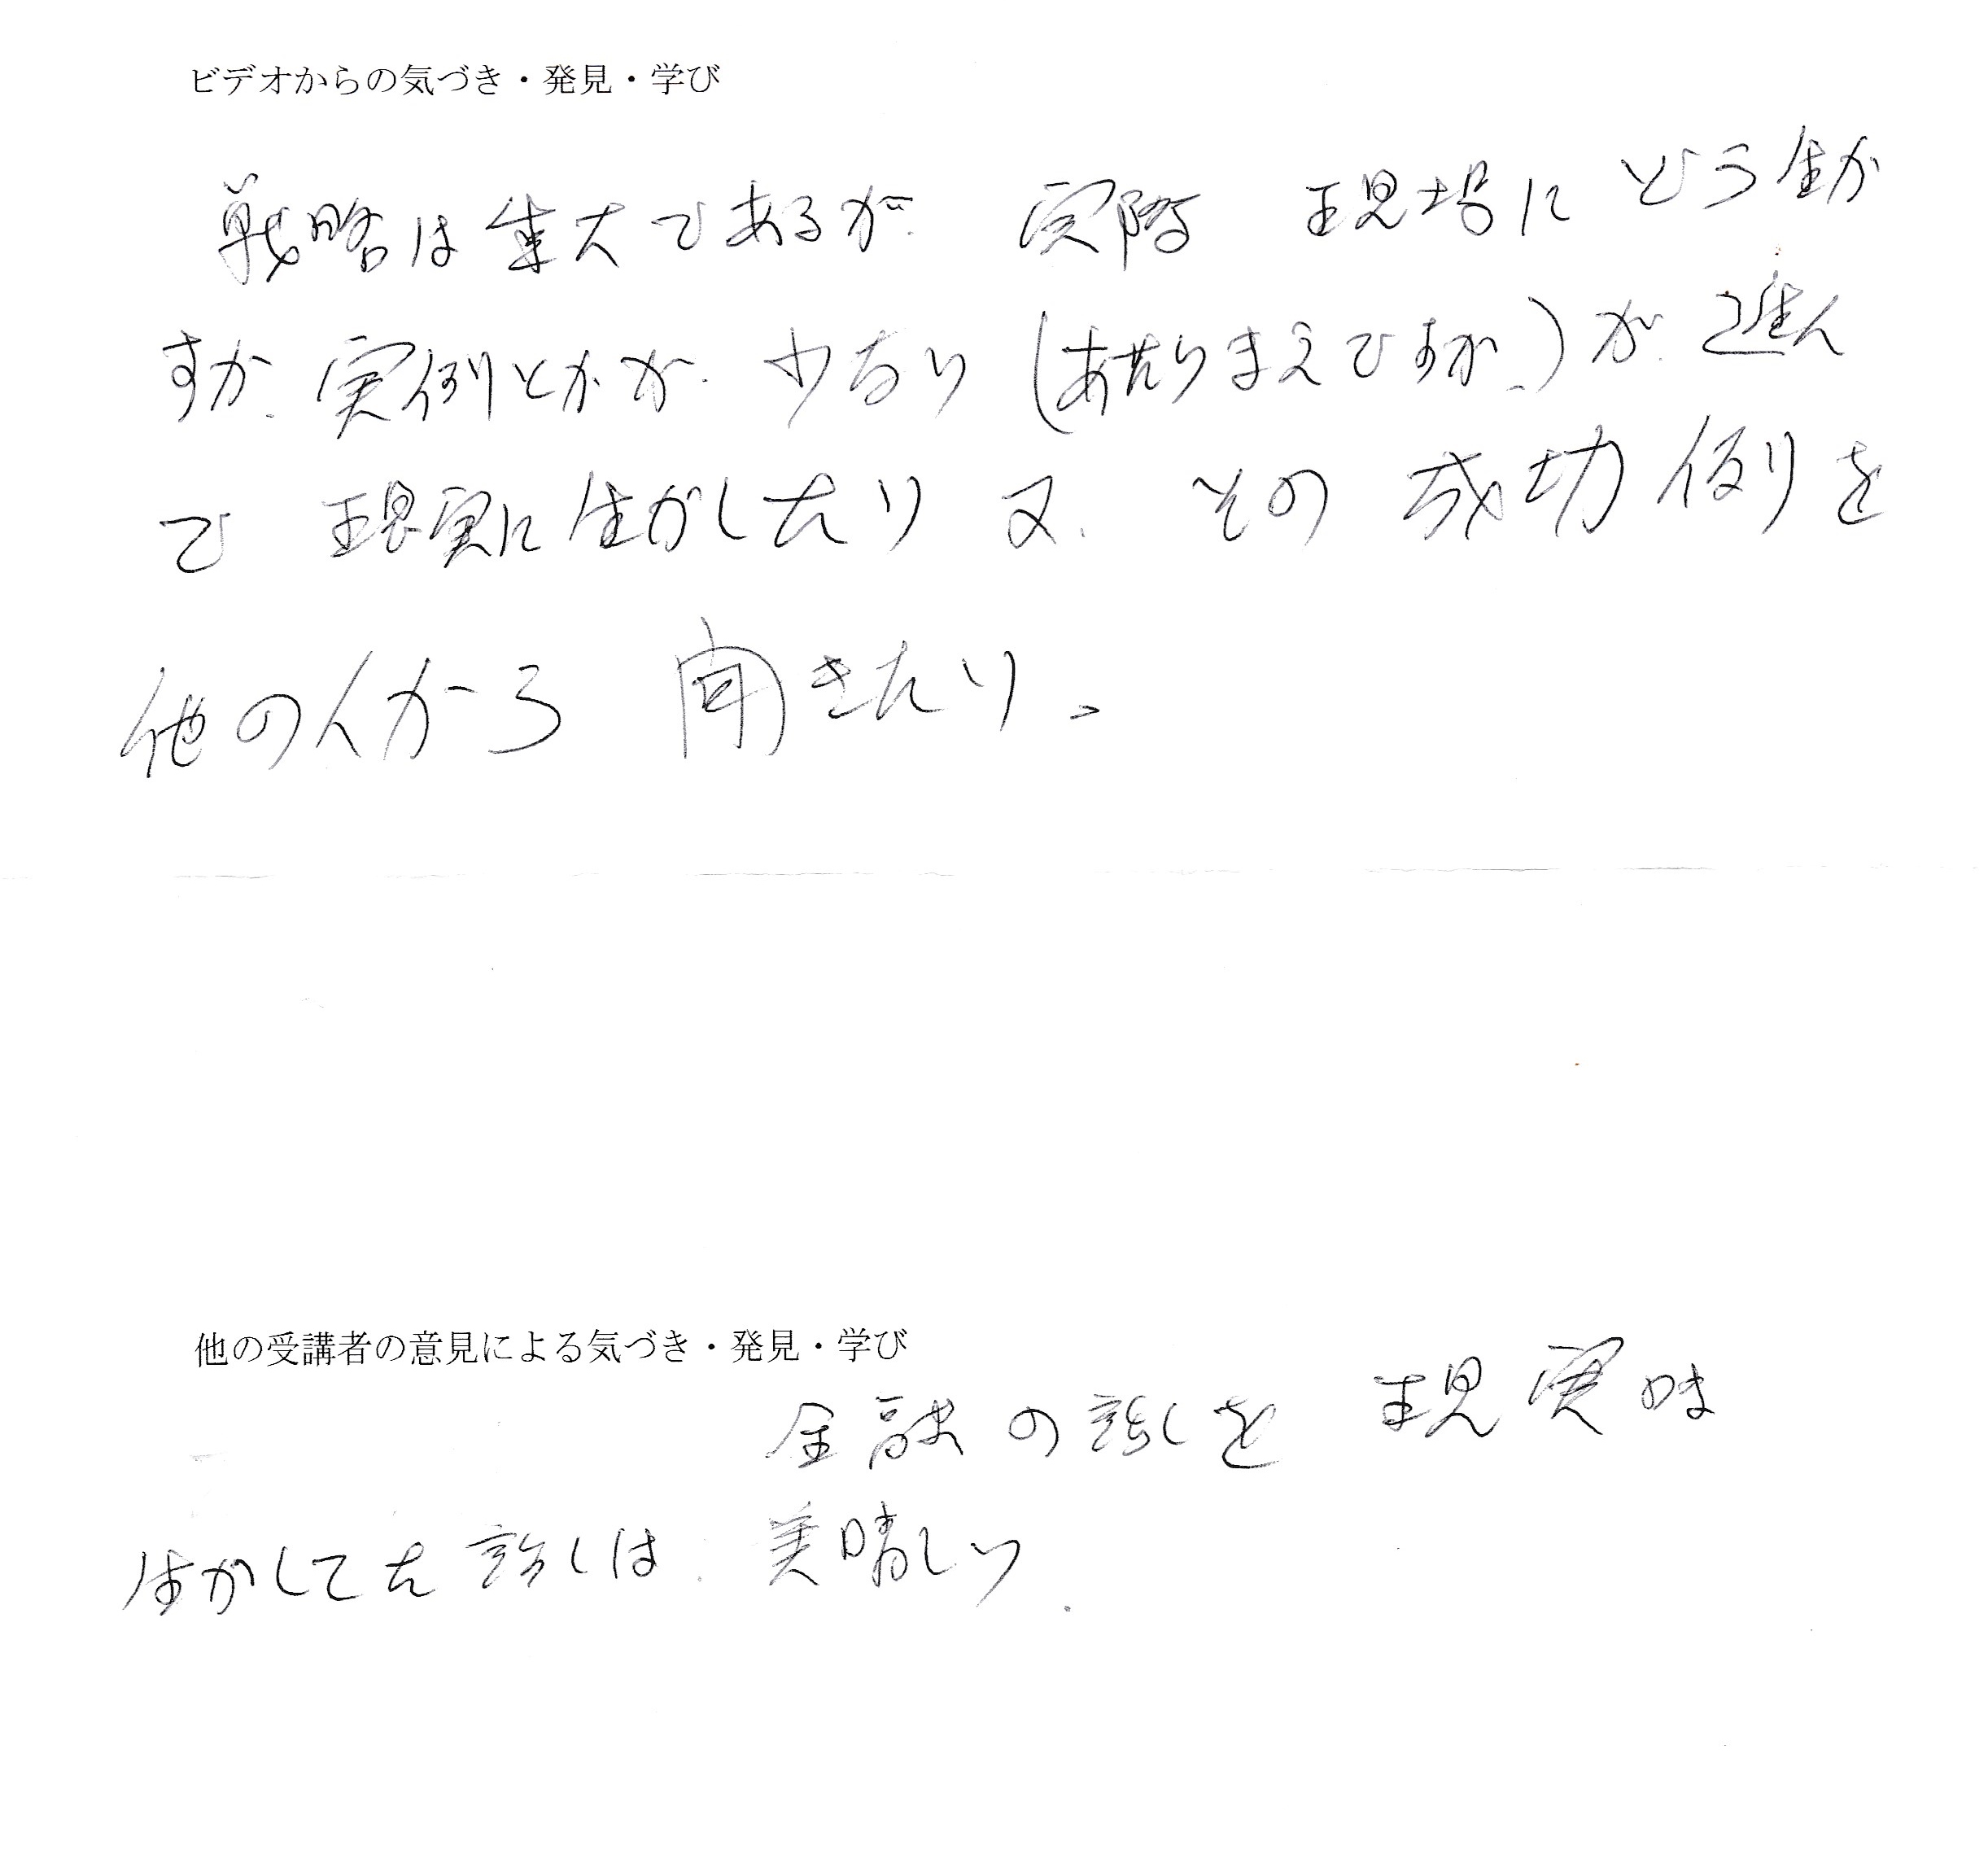 ビデオからの気づき・発見・学び
戦略は重大であるが、実際 現場にどう生か
すか、実例とかが、少ない(あたりまえですが、)が、進ん
で 現実に生かしたり 又、その 成功例を
他の人から 聞きたい。
他の受講者の意見による気づき・発見・学び
金融の話しを 現実
生かしてた話しは、美晴しい.